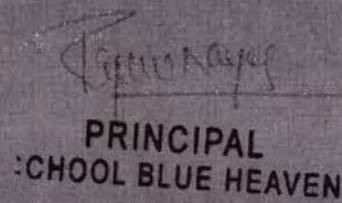 PRINCIPAL
CHOOL BLUE HEAVEN